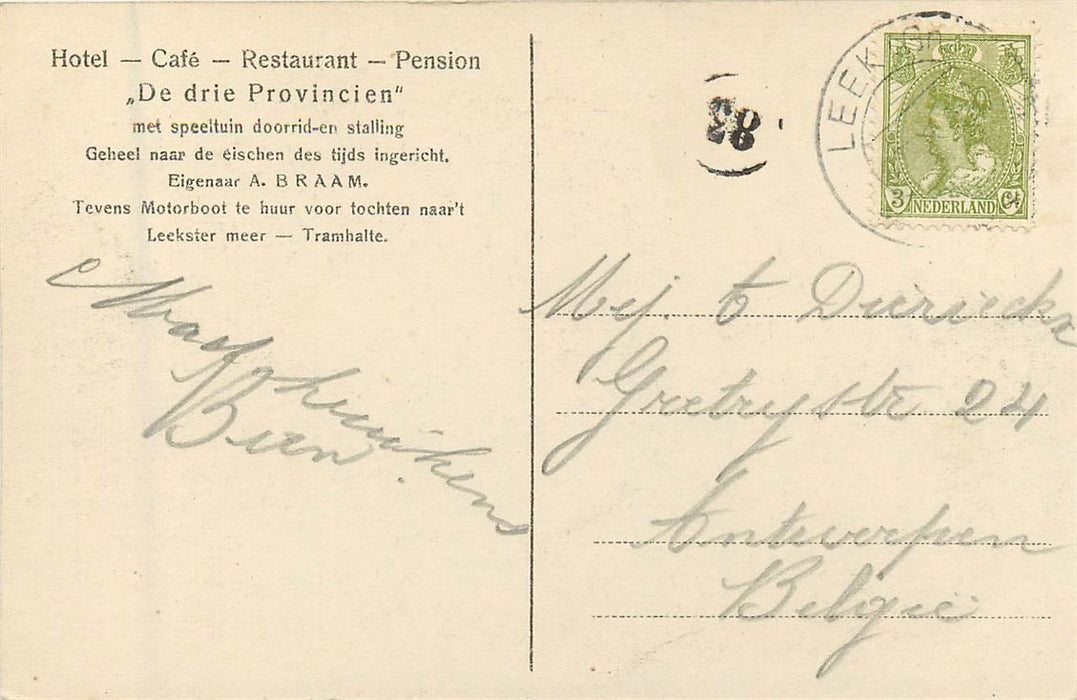 Hotel — Café — Restaurant — Pension
„De drie Provincien"
met speeltuin doorrid-en stalling
Geheel naar de eischen des tijds ingericht.
Eigenaar A. BRAAM.
Tevens Motorboot te huur voor tochten naar't
Leekster meer — Tramhalte.
Bien
LEEK
28
3 NEDERLAND Ct
Mej. Dierickx
Gretrystr 24
Antwerpen
België